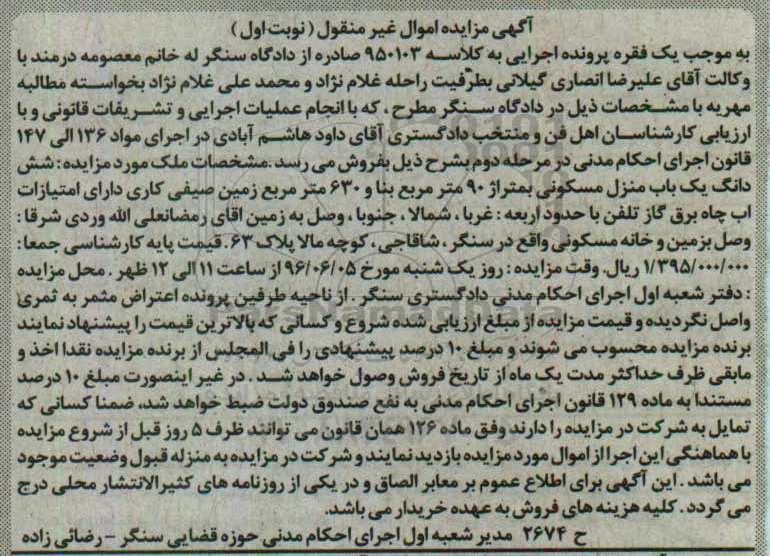 آگهی مزایده اموال غیر منقول (نوبت اول)
به موجب یک فقره پرونده اجرایی به کلاسه ۹۵۰۱۰۳ صادره از دادگاه سنگر له خانم معصومه درمند با
وکالت آقای علیرضا انصاری گیلانی بطرفیت راحله غلام نژاد و محمد علی غلام نژاد بخواسته مطالبه
مهریه با مشخصات ذیل در دادگاه سنگر مطرح ، که با انجام عملیات اجرایی و تشریفات قانونی و با
ارزیابی کارشناسان اهل فن و منتخب دادگستری آقای داود هاشم آبادی در اجرای مواد ۱۳۶ الی ۱۴۷
قانون اجرای احکام مدنی در مرحله دوم بشرح ذیل بفروش می رسد .مشخصات ملک مورد مزایده: شش
دانگ یک باب منزل مسکونی بمتراژ ۹۰ متر مربع بنا و ۶۳۰ متر مربع زمین صیفی کاری دارای امتیازات
اب چاه برق گاز تلفن با حدود اربعه : غربا ، شمالا ، جنوبا ، وصل به زمین اقای رمضانعلی الله وردی شرقا :
وصل بزمین و خانه مسکونی واقع در سنگر ، شاقاجی ، کوچه مالا پلاک ۶۳. قیمت پایه کارشناسی جمعا :
۱/۳۹۵/۰۰۰/۰۰۰ ریال. وقت مزایده : روز یک شنبه مورخ ۹۶/۰۶/۰۵ از ساعت ۱۱ الی ۱۲ ظهر . محل مزایده
: دفتر شعبه اول اجرای احکام مدنی دادگستری سنگر . از ناحیه طرفین پرونده اعتراض مثمر به ثمری
واصل نگردیده و قیمت مزایده از مبلغ ارزیابی شده شروع و کسانی که بالاترین قیمت را پیشنهاد نمایند
برنده مزایده محسوب می شوند و مبلغ ۱۰ درصد پیشنهادی را فی المجلس از برنده مزایده نقدا اخذ و
مابقی ظرف حداکثر مدت یک ماه از تاریخ فروش وصول خواهد شد . در غیر اینصورت مبلغ ۱۰ درصد
مستندا به ماده ۱۲۹ قانون اجرای احکام مدنی به نفع صندوق دولت ضبط خواهد شد، ضمنا کسانی که
تمایل به شرکت در مزایده را دارند وفق ماده ۱۲۶ همان قانون می توانند ظرف ۵ روز قبل از شروع مزایده
با هماهنگی این اجرا از اموال مورد مزایده بازدید نمایند و شرکت در مزایده به منزله قبول وضعیت موجود
می باشد . این آگهی برای اطلاع عموم بر معابر الصاق و در یکی از روزنامه های کثیرالانتشار محلی درج
می گردد . کلیه هزینه های فروش به عهده خریدار می باشد.
ح ۲۶۷۴ مدیر شعبه اول اجرای احکام مدنی حوزه قضایی سنگر - رضائی زاده